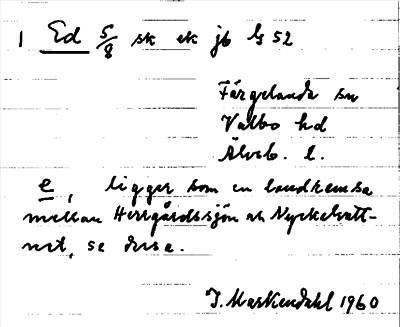 1 Ed 5/8 sk ek jb G 52
Färgelanda sn
Valbo hd
Älvsb. l.
e, ligger som en landremsa
mellan Herrgårdssjön ok Nyckelvatt-
net, se dessa.
J. Markendahl 1960